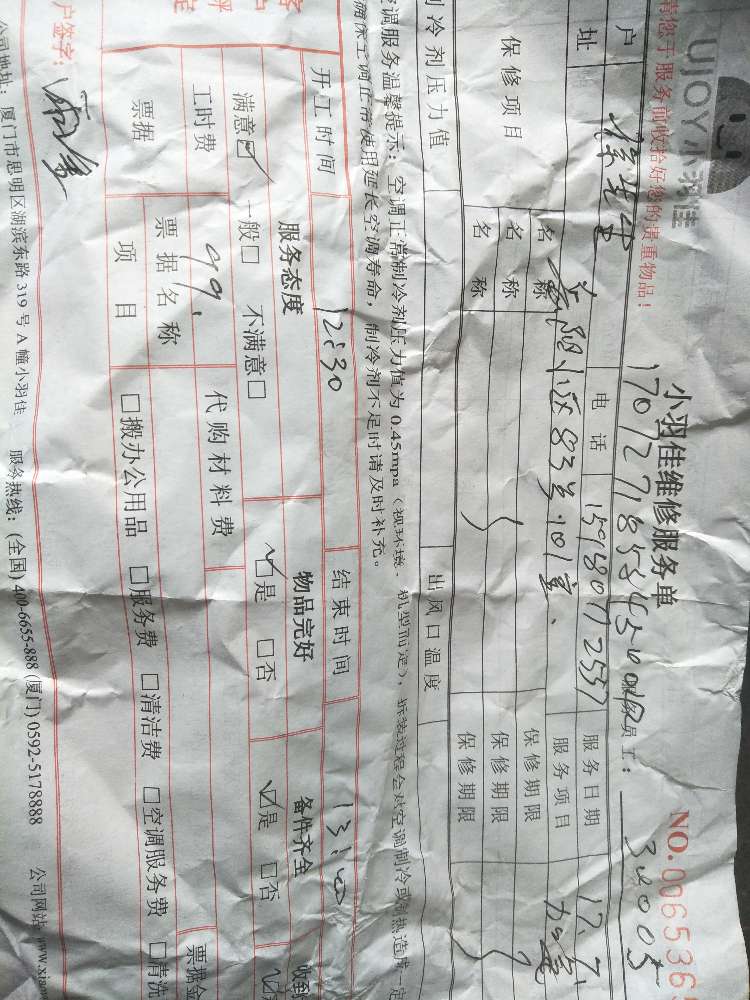 UJOY小羽佳
小羽佳维修服务单
NO.006536
请您于服务前收拾好您的贵重物品！
员工：
34005
户
电话
服务日期
址
83号101室
服务项目
保修项目
名称
保修期限
名称
保修期限
名称
保修期限
制冷剂压力值
出风口温度
空调服务温馨提示：空调正常制冷剂压力值为0.45mpa（视环境、机型而定），拆装过程会对空调制冷或制热造成
确保空调正常使用延长空调寿命，制冷剂不足时请及时补充。
开工时间
12:30
结束时间
13:00
服务态度
物品完好
备件齐全
收到
满意☑
一般□
不满意□
☑是
□否
☑是
□否
工时费
99.
代购材料费
票据
票据名称
票据金
项目
□搬办公用品
□服务费
□清洁费
□空调服务费
□清洗
户签字：
公司地址：厦门市思明区湖滨东路319号A幢小羽佳
服务热线：(全国) 400-6655-888 (厦门) 0592-5178888
公司网站：www.xiao